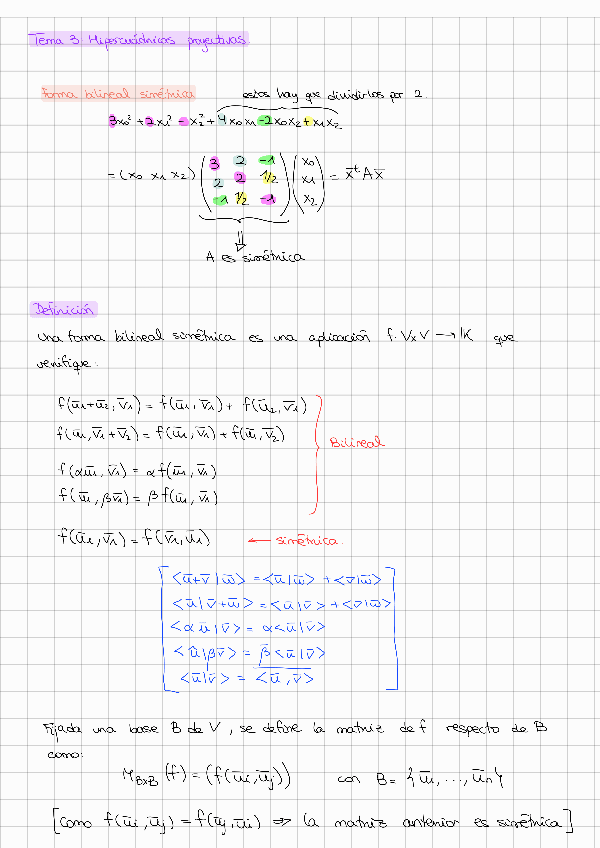 Tema 3 Hipercuádricas proyectivas.
Forma bilineal simétrica
estos hay que dividirlos por 2.
3x₀² + 2x₁² - x₂² + 4x₀x₁ - 2x₀x₂ + x₁x₂
= (x₀ x₁ x₂) ( 3 2 -1 ; 2 2 1/2 ; -1 1/2 -1 ) ( x₀ ; x₁ ; x₂ ) = x̄ᵗAx̄
A es simétrica
Definición
Una forma bilineal simétrica es una aplicación f: VxV → K que
verifique:
f(ū₁+ū₂, v̄₁) = f(ū₁, v̄₁) + f(ū₂, v̄₁)
f(ū₁, v̄₁+v̄₂) = f(ū₁, v̄₁) + f(ū₁, v̄₂)
Bilineal
f(αū₁, v̄₁) = αf(ū₁, v̄₁)
f(ū₁, βv̄₁) = βf(ū₁, v̄₁)
f(ū₁, v̄₁) = f(v̄₁, ū₁) ← simétrica.
<ū+v̄|w̄> = <ū|w̄> + <v̄|w̄>
<ū|v̄+w̄> = <ū|v̄> + <v̄|w̄>
<αū|v̄> = α<ū|v̄>
<ū|βv̄> = β̄<ū|v̄>
<ū|v̄> = <ū,v̄>
Fijada una base B de V, se define la matriz de f respecto de B
como:
M_BxB (f) = (f(ūi, ūj)) con B = {ū₁, ..., ūn}
[como f(ūi, ūj) = f(ūj, ūi) ⇒ la matriz anterior es simétrica]